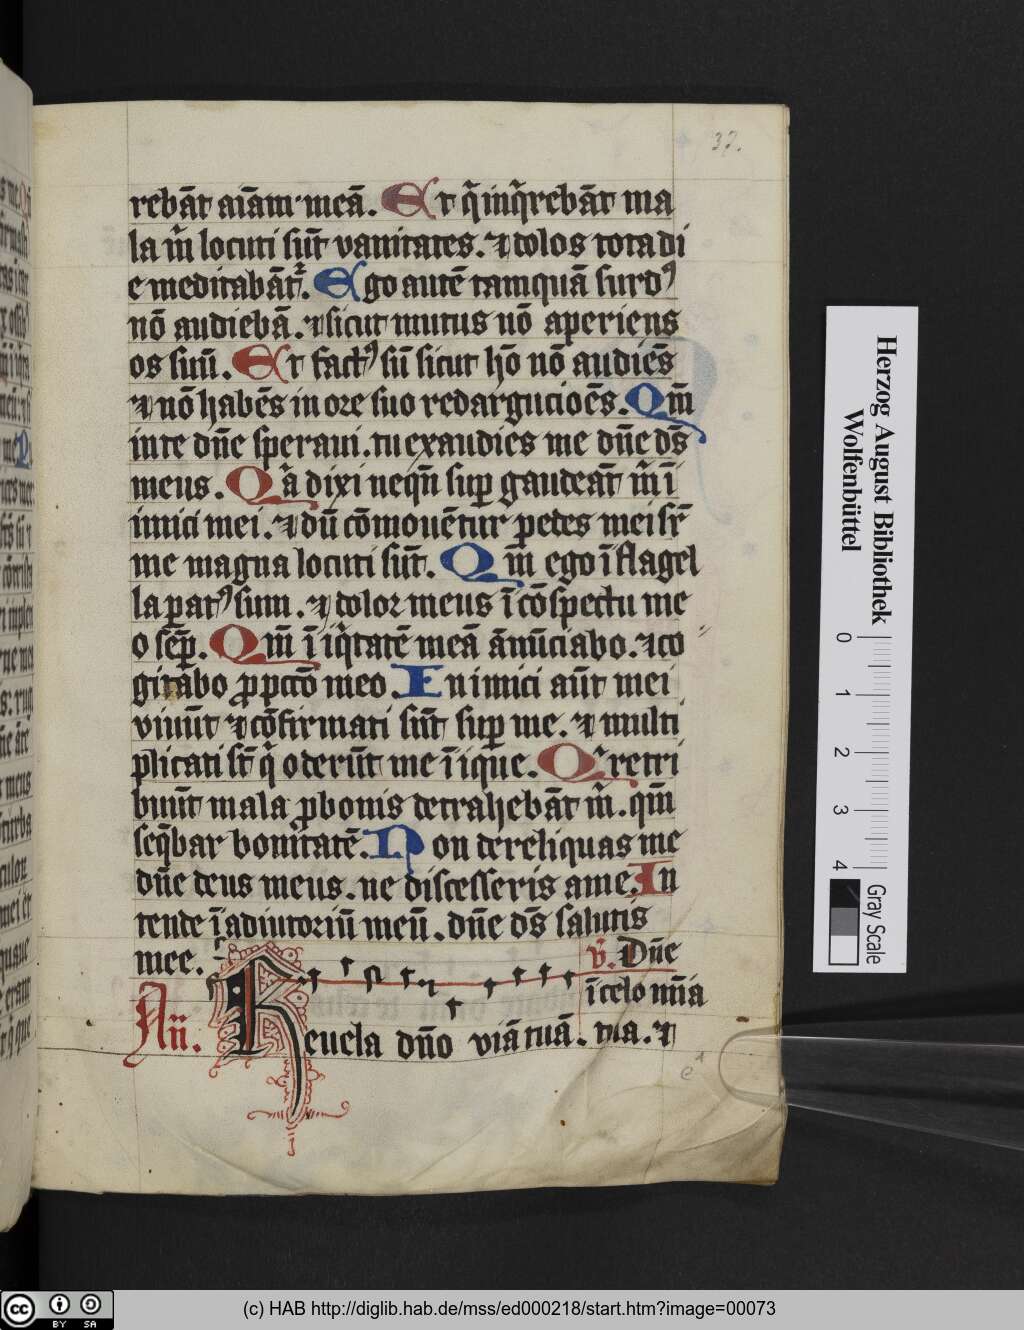 37.
rebāt aīam meā. Et q̄ inq̄rebāt ma
la m̄ locuti sūt vanitates. ⁊ dolos tota di
e meditabāt᷑. Ego autē tamquā surdꝰ
nō audiebā. ⁊ sicut mutus nō aperiens
os suū. Et factꝰ sū sicut hō nō audiēs
⁊ nō habēs in ore suo redargucioēs. Qm̄
in te dn̄e speraui. tu exaudies me dn̄e ds̄
meus. Qā dixi neqn̄ suꝑ gaudeāt m̄ ī
imici mei. ⁊ dū cōmouētur pedes mei sr̄
me magna locuti sūt. Qm̄ ego ī flagel
la paratꝰ sum. ⁊ dolor meus ī cōspectu me
o sēꝑ. Qm̄ ī iq̄tatē meā ānūciabo. ⁊ co
gitabo ꝓ pctō meo. Inimici aūt mei
viuūt ⁊ cōfirmati sūt suꝑ me. ⁊ multi
plicati st̄ q̄ oderūt me īique. Qi retri
buūt mala ꝓ bonis detrahebāt m̄. qm̄
seq̄bar bonitatē. Non derelinquas me
dn̄e deus meus. ne discesseris a me. In
tende ī adiutoriū meū. dn̄e ds̄ salutis
mee. v̄. Dn̄e
ī celo mīa
Añ. Reuela dn̄o viā tuā. tua. ⁊
Herzog August Bibliothek
Wolfenbüttel
0 1 2 3 4
Gray Scale
cc BY SA
(c) HAB http://diglib.hab.de/mss/ed000218/start.htm?image=00073